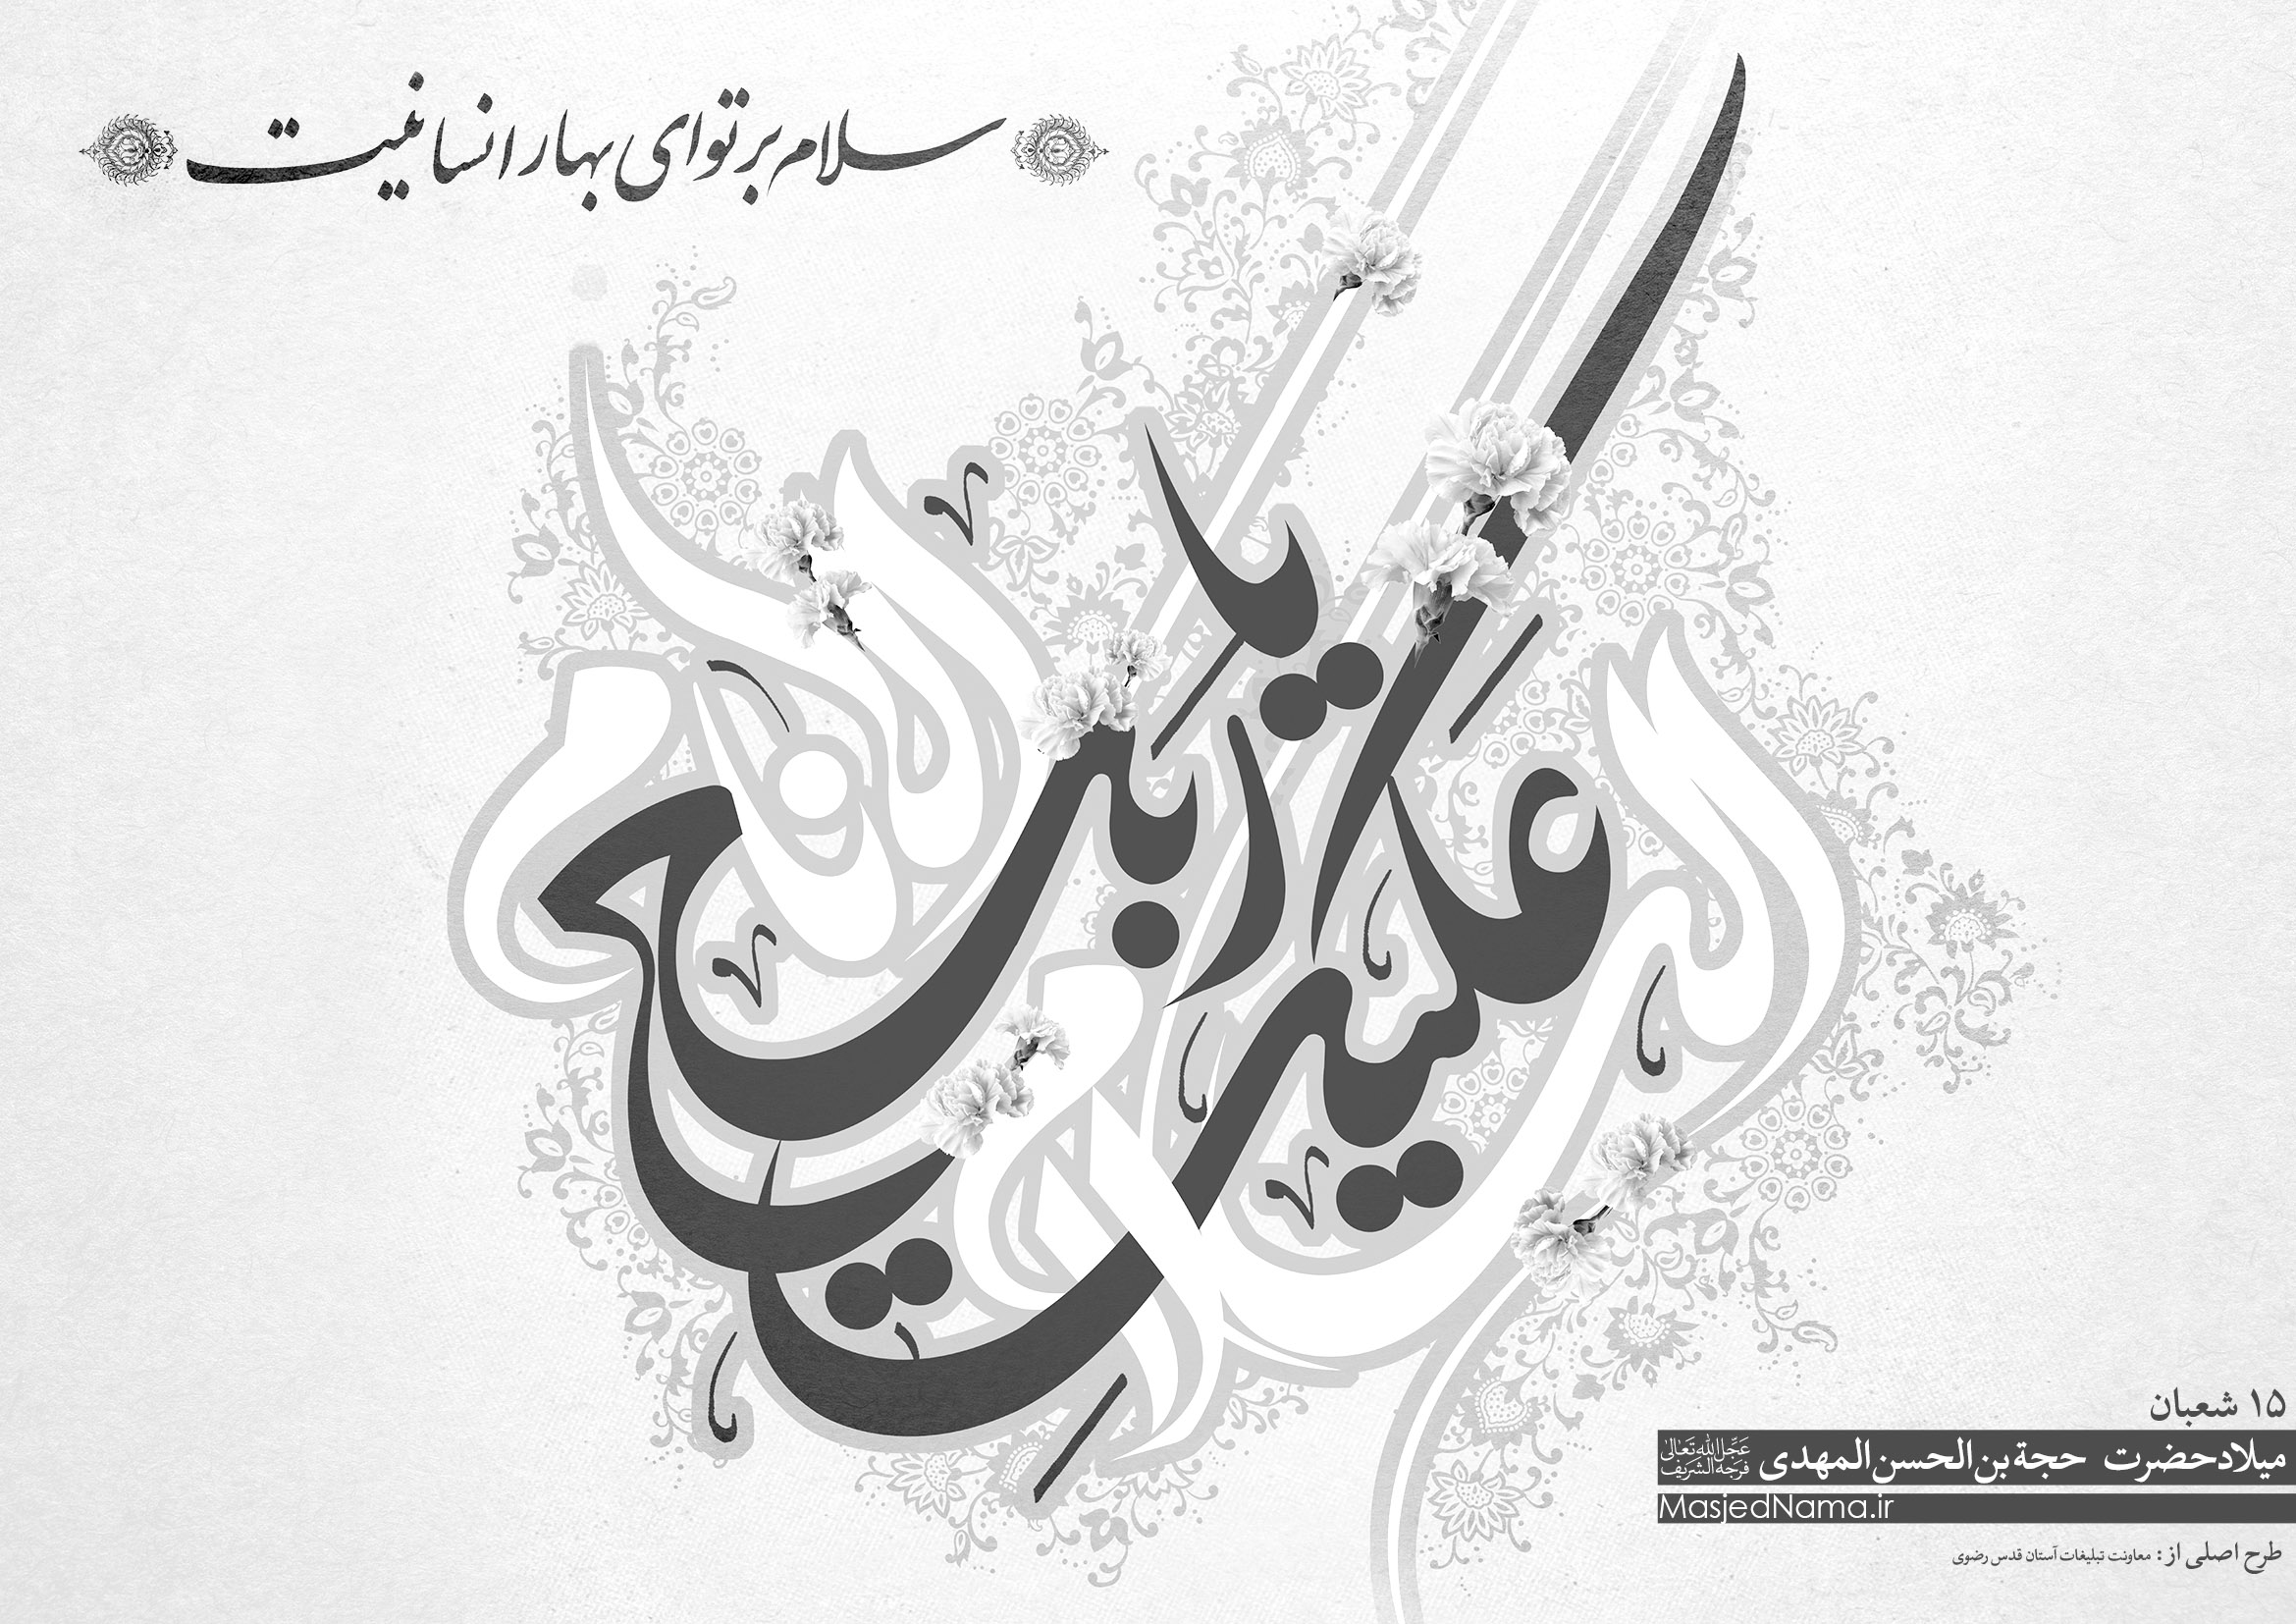 سلام بر تو ای بهار انسانیت
السلام علیک یا ربیع الانام
۱۵ شعبان
میلاد حضرت حجة بن الحسن المهدی عَجِّلَ اللهُ تَعٰالیٰ فَرَجَهُ الشَّریفْ
MasjedNama.ir
طرح اصلی از: معاونت تبلیغات آستان قدس رضوی